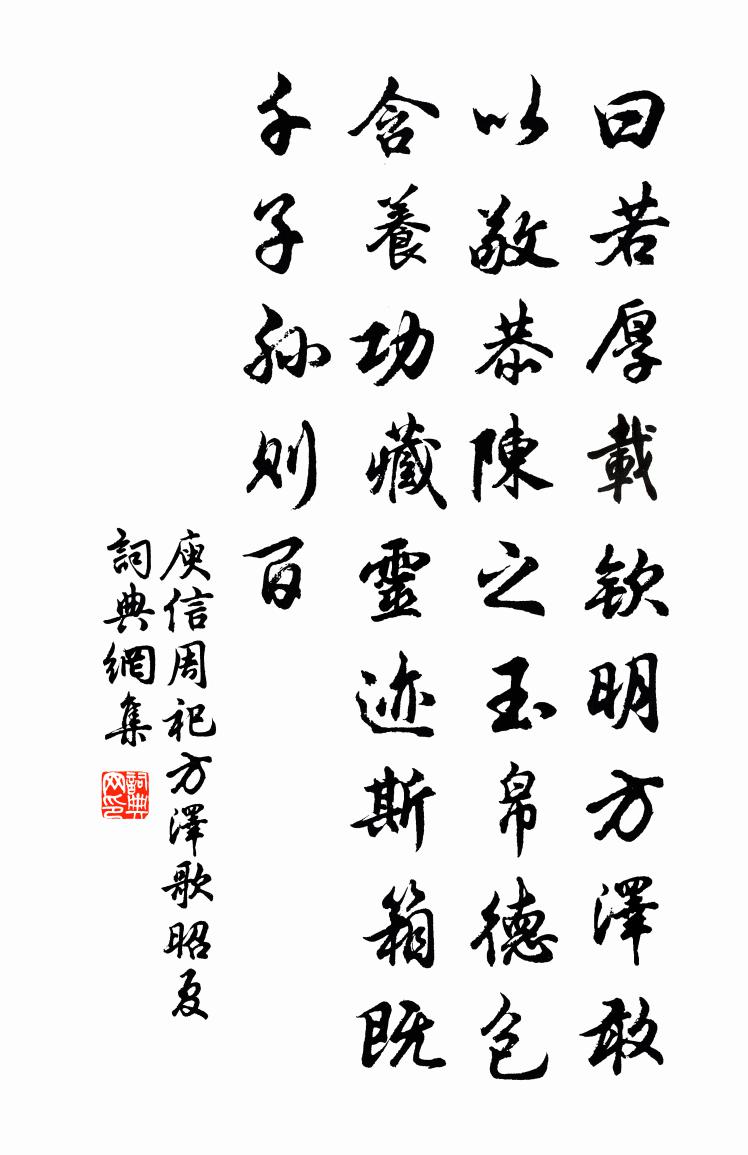 曰若厚載欽明方澤敢
以敬恭陳之玉帛德包
含養功藏靈迹斯箱既
千子孫則百
庾信周祀方澤歌昭夏
詞典網集
詞典网印